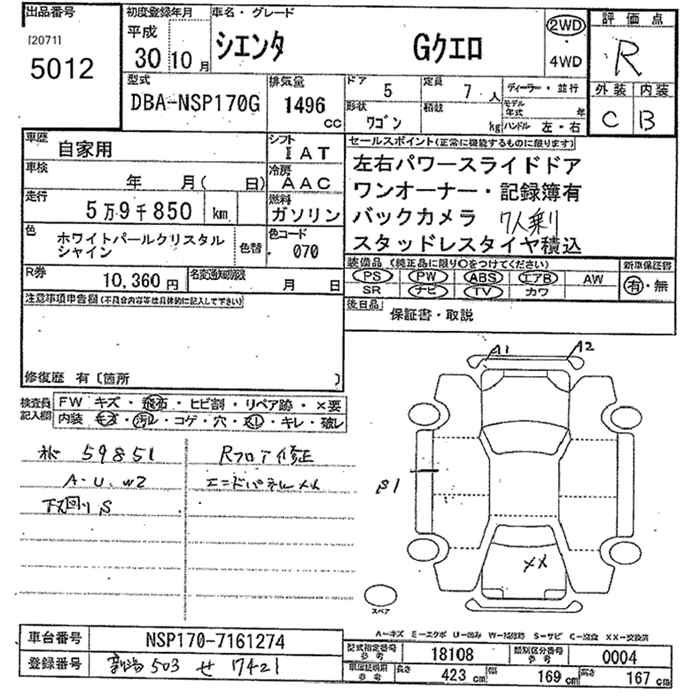 出品番号
[2071]
5012
初度登録年月
平成
30 10 月
車名・グレード
シエンタ Gクエロ
2WD
4WD
評価点
R
外装 内装
C B
型式
DBA-NSP170G
排気量
1496 cc
ドア
5
定員
7 人
形状
ワゴン
積載
kg
ディーラー・並行
モデル年式 年
ハンドル 左・右
車歴
自家用
シフト
I A T
車検
年 月( 日)
冷房
A A C
走行
5 万 9 千 850 km
燃料
ガソリン
色
ホワイトパールクリスタル
シャイン
色替
色コード
070
R券
10,360 円
名変通知期限
月 日
セールスポイント(正常に機能するものに限ります)
左右パワースライドドア
ワンオーナー・記録簿有
バックカメラ 7人乗り
スタッドレスタイヤ積込
装備品(純正品に限り○をつけてください)
新車保証書
PS PW ABS エアB AW
SR ナビ TV カワ
有・無
後日品
保証書・取説
注意事項申告欄(不具合内容等は具体的に記入して下さい)
修復歴 有〔箇所 〕
検査員
記入欄
FW キズ・飛石・ヒビ割・リペア跡・×要
内装 キズ・汚レ・コゲ・穴・スレ・キレ・破レ
59851
Rフロア修正
A・U、W2
エンドパネルメ
下回りS
A1
A2
B1
XX
スペア
A－キズ E－エクボ U－凹み W－補修跡 S－サビ C－腐食 XX－交換済
車台番号
NSP170-7161274
登録番号
503 せ 7421
型式指定番号
参考
18108
類別区分番号
参考
0004
車庫証明用
参考
長さ
423 cm
幅
169 cm
高さ
167 cm